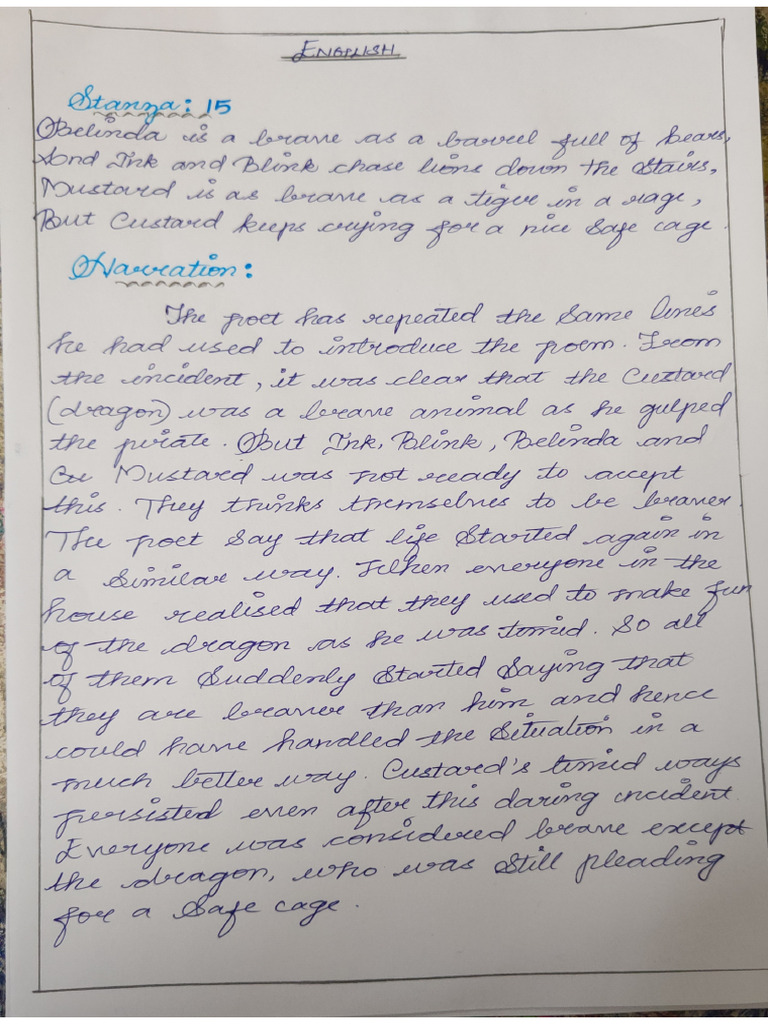 ENGLISH
Stanza: 15
Belinda is a brave as a barrel full of bears,
And Ink and Blink chase lions down the stairs,
Mustard is as brave as a tiger in a rage,
But Custard keeps crying for a nice safe cage.
Narration:
The poet has repeated the same lines
he had used to introduce the poem. From
the incident, it was clear that the Custard
(dragon) was a brave animal as he gulped
the pirate. But Ink, Blink, Belinda and
Cu Mustard was not ready to accept
this. They thinks themselves to be braver.
The poet say that life started again in
a similar way. When everyone in the
house realised that they used to make fun
of the dragon as he was timid. So all
of them suddenly started saying that
they are braver than him and hence
could have handled the situation in a
much better way. Custard's timid ways
persisted even after this daring incident.
Everyone was considered brave except
the dragon, who was still pleading
for a safe cage.